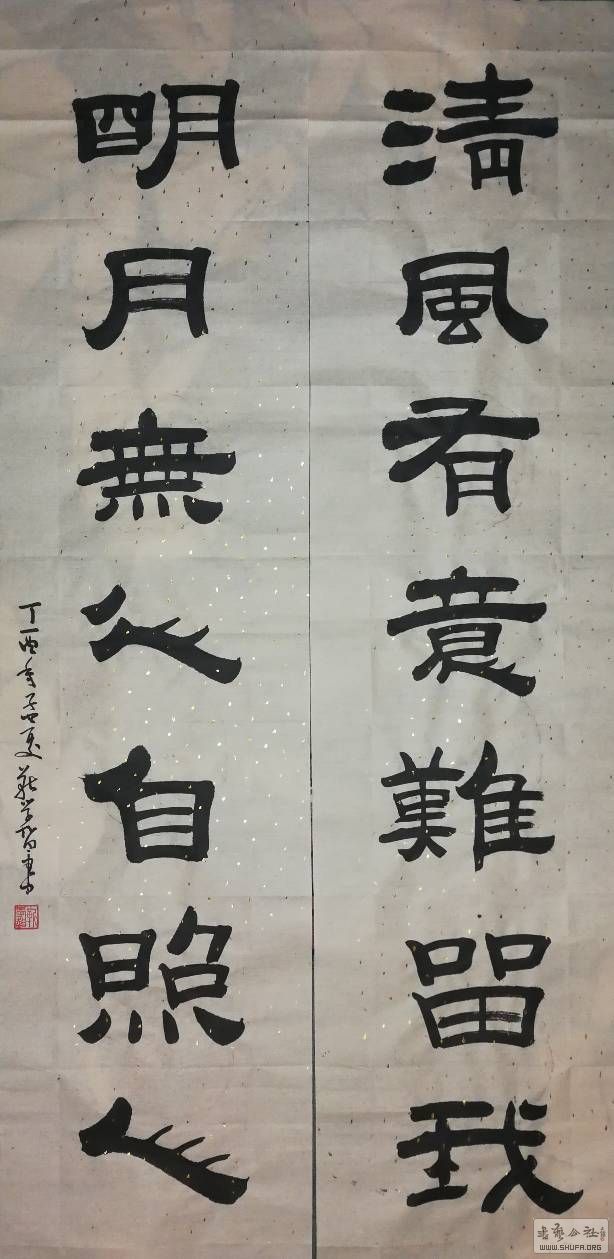 清風有意難留我
明月無心自照人
丁酉年孟夏
書藝公社
WWW.SHUFA.ORG